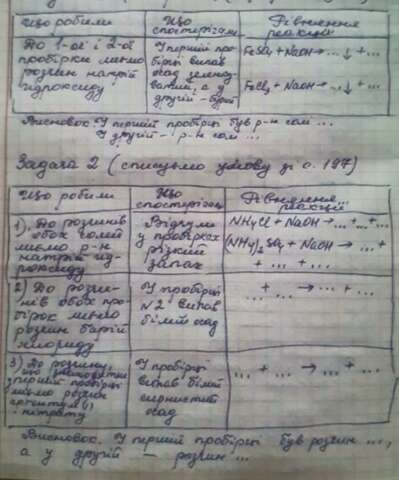 Що робили
Що спостерігали
Рівняння реакції
До 1-ої і 2-ої
пробірки ллємо
розчин натрій
гідроксиду
У першій про-
бірці випав
осад зеленку-
ватий, а у
другій - бурий
FeSO₄ + NaOH → ...↓ + ...
FeCl₃ + NaOH → ...↓ + ...
Висновок. У першій пробірці був р-н солі ...
У другій - р-н солі ...
Задача 2 (списуємо умову зі с. 197)
Що робили
Що спостерігали
Рівняння реакції
1). До розчинів
обох солей
ллємо р-н
натрій гід-
роксиду
Відчули
у пробірках
різкий
запах
NH₄Cl + NaOH → ... + ... + ...
(NH₄)₂SO₄ + NaOH → ... +
+ ... + ...
2) До розчи-
нів обох про-
бірок ллємо
розчин барій
хлориду
У пробірці
№2 випав
білий осад
... + ... → ... + ...
3) До розчину,
що знаходиться
у першій пробірці
ллємо розчин
аргентум (I)
нітрату
У пробірці
випав білий
сирнистий
осад
... + ... → ... + ...
Висновок. У першій пробірці був розчин ...,
а у другій — розчин ...